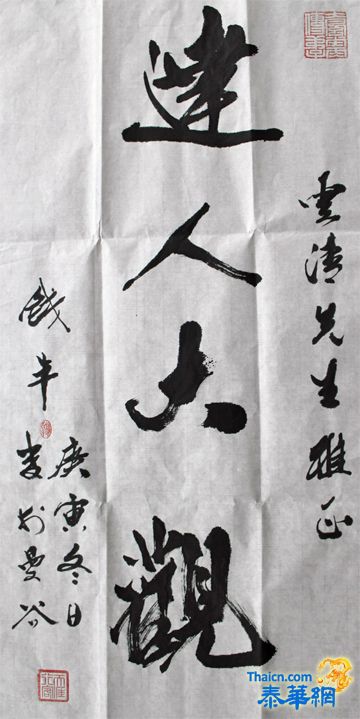 雲清先生雅正
達人大觀
庚寅冬日
書於曼谷
Thaicn.com
泰華網